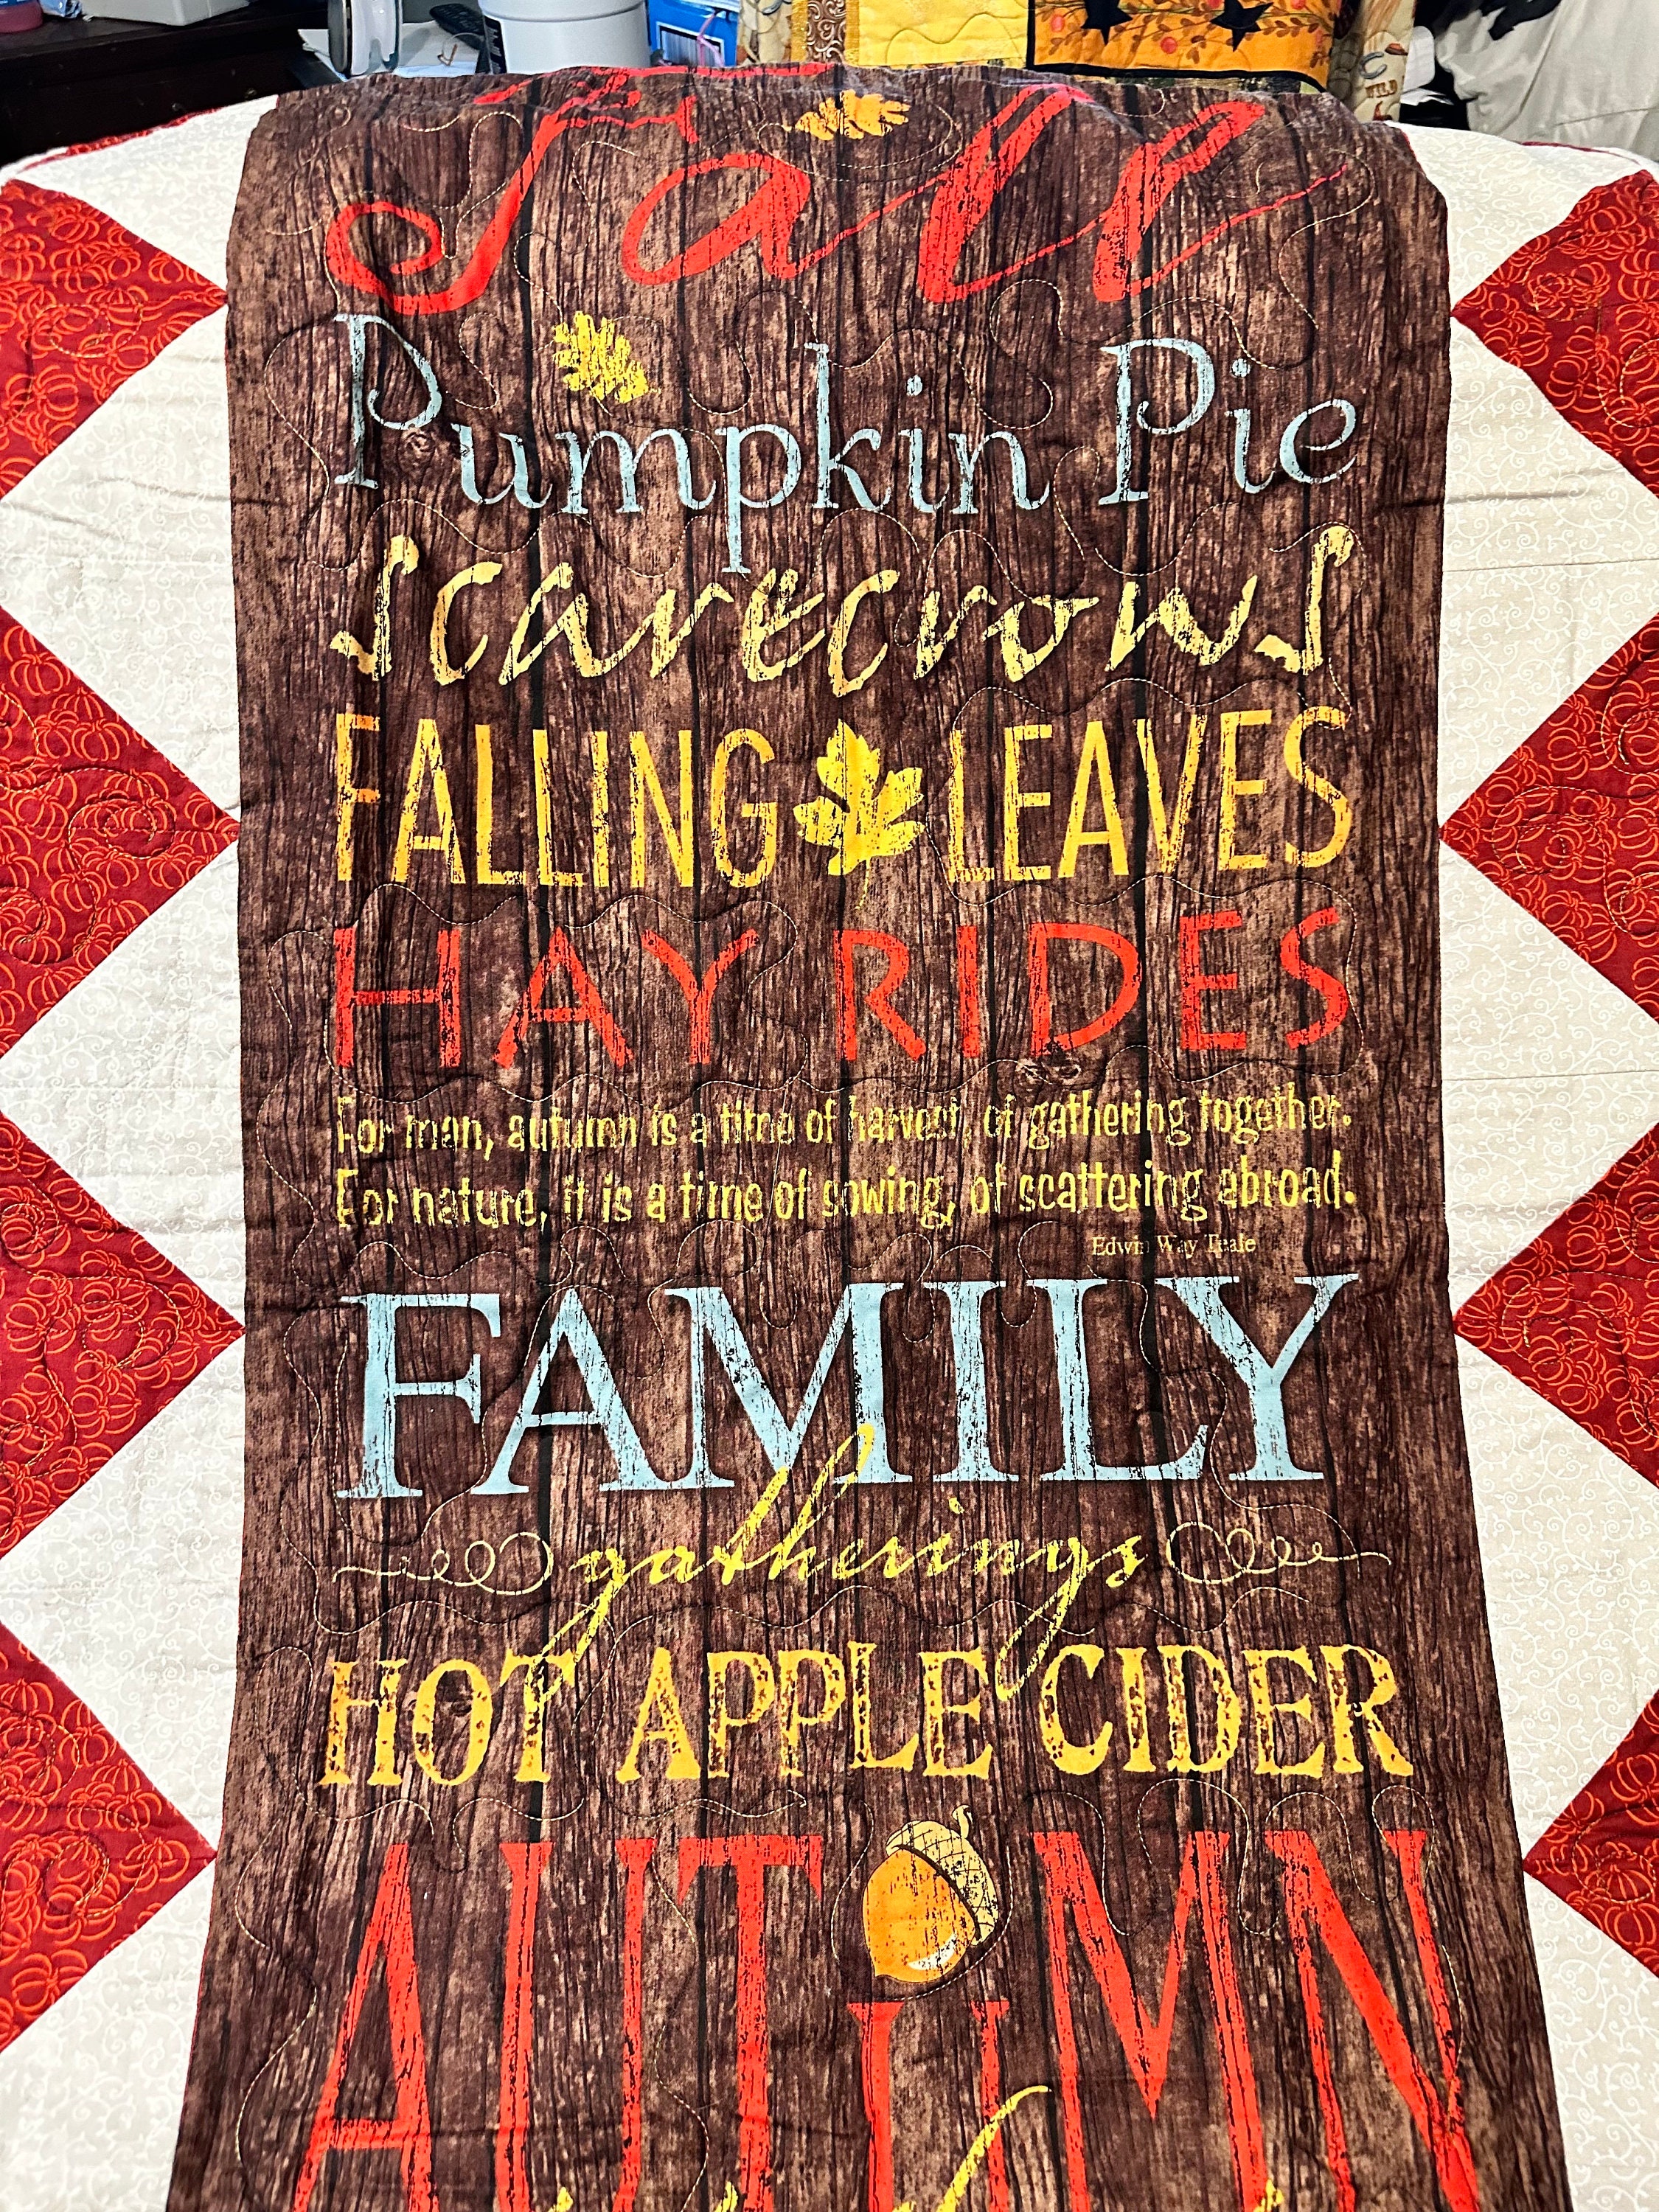 Fall
Pumpkin Pie
Scarecrows
FALLING LEAVES
HAY RIDES
For man, autumn is a time of harvest, of gathering together.
For nature, it is a time of sowing, of scattering abroad.
Edwin Way Teale
FAMILY
gatherings
HOT APPLE CIDER
AUTUMN
WILD